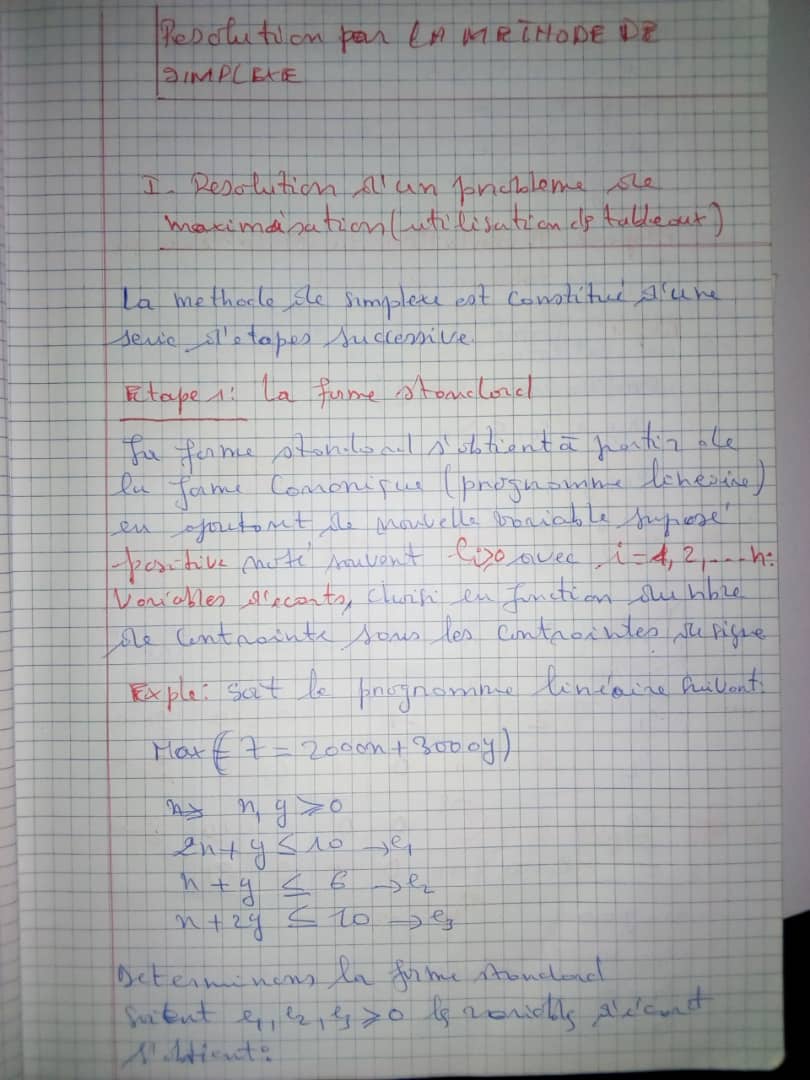 Resolution par LA METHODE DE
SIMPLEXE
I- Resolution d'un probleme de
maximisation (utilisation ds tableaux)
La methode de simplexe est constitué d'une
serie d'etapes successive.
Etape 1: La forme standard
La forme standard s'obtient à partir de
la forme Canonique (programme lineaire)
en ajoutant de nouvelle variable supposé
positive noté souvent ei≥0 avec i=1, 2,....n:
Variables d'ecarts, choisi en fonction du nbre
de Contrainte sous les contraintes du signe
Exple: soit le programme linéaire suivant:
Max (Z = 2000x + 3000y)
x, y ≥ 0
2x + y ≤ 10 → e1
x + y ≤ 6 → e2
x + 2y ≤ 10 → e3
Determinons la forme standard
Soient e1, e2, e3 ≥ 0 ls variabls d'écart
s'obtient: